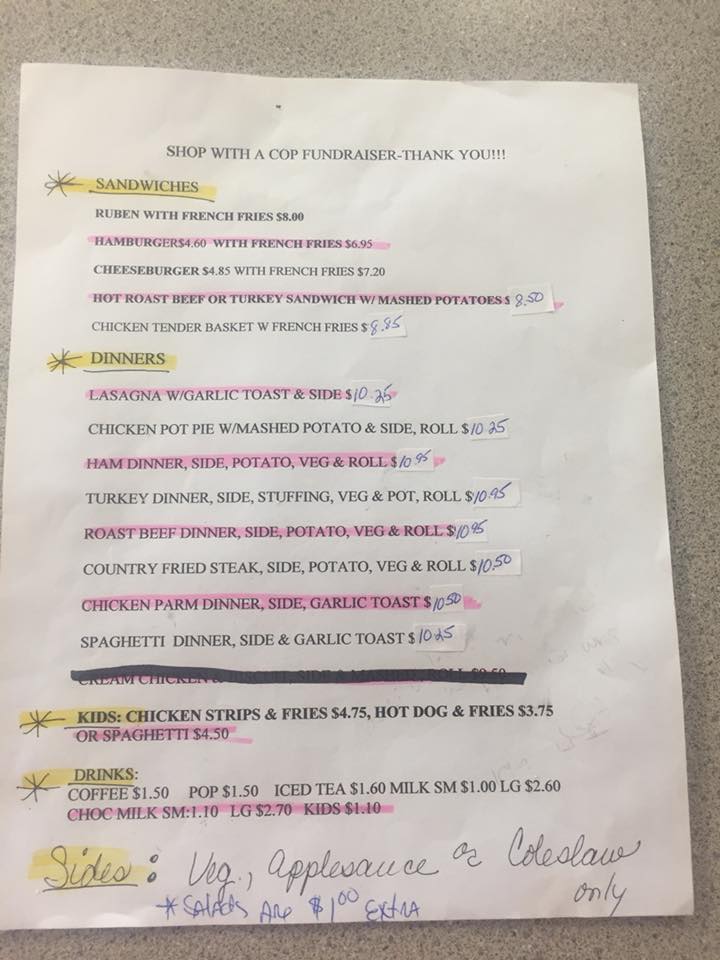 SHOP WITH A COP FUNDRAISER-THANK YOU!!!
SANDWICHES
RUBEN WITH FRENCH FRIES $8.00
HAMBURGER$4.60 WITH FRENCH FRIES $6.95
CHEESEBURGER $4.85 WITH FRENCH FRIES $7.20
HOT ROAST BEEF OR TURKEY SANDWICH W/ MASHED POTATOES $ 8.50
CHICKEN TENDER BASKET W FRENCH FRIES $ 8.85
DINNERS
LASAGNA W/GARLIC TOAST & SIDE $10.25
CHICKEN POT PIE W/MASHED POTATO & SIDE, ROLL $10.25
HAM DINNER, SIDE, POTATO, VEG & ROLL $10.95
TURKEY DINNER, SIDE, STUFFING, VEG & POT, ROLL $10.95
ROAST BEEF DINNER, SIDE, POTATO, VEG & ROLL $10.95
COUNTRY FRIED STEAK, SIDE, POTATO, VEG & ROLL $10.50
CHICKEN PARM DINNER, SIDE, GARLIC TOAST $10.50
SPAGHETTI DINNER, SIDE & GARLIC TOAST $10.25
CREAM CHICKEN & SIDE ROLL
KIDS: CHICKEN STRIPS & FRIES $4.75, HOT DOG & FRIES $3.75
OR SPAGHETTI $4.50
DRINKS:
COFFEE $1.50 POP $1.50 ICED TEA $1.60 MILK SM $1.00 LG $2.60
CHOC MILK SM:1.10 LG $2.70 KIDS $1.10
Sides: Veg., Applesauce or Coleslaw
only
*Salads Are $1.00 Extra